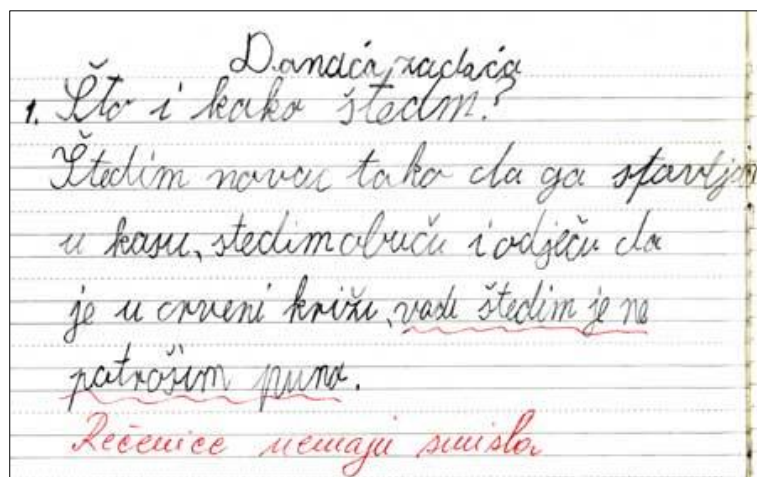 Domaća zadaća
1. Što i kako štedim?
Štedim novac tako da ga stavljam
u kasu, stedim obuču i odječu da
je u crveni križu, vadu štedim je ne
patrošim puno.
Rečenice nemaju smisla